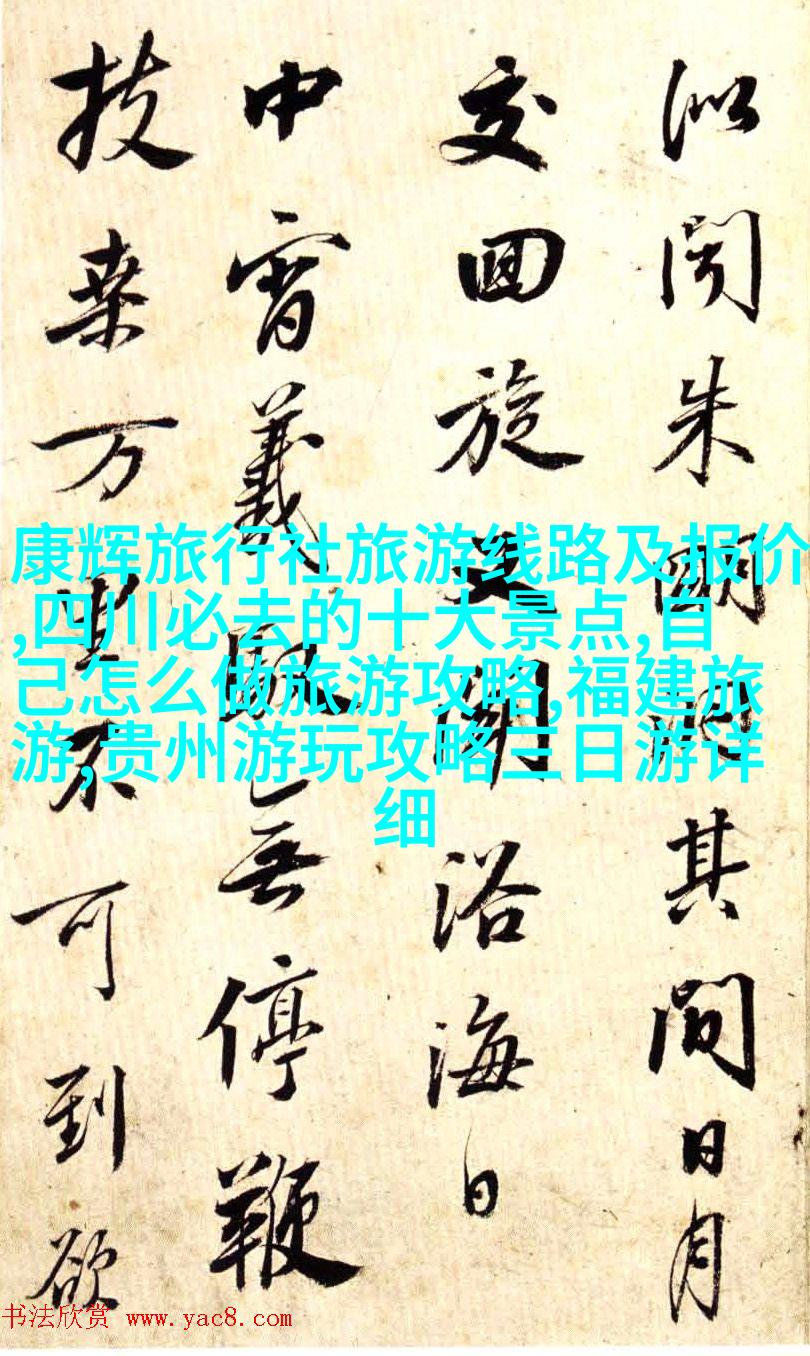 似聞朱其間日月
交囬旋又聞浴海日
中宵羲馭無停鞭
扶桒万里不可到欲
康辉旅行社旅游线路及报价
,四川必去的十大景点,自
己怎么做旅游攻略,福建旅
游,贵州游玩攻略三日游详
细
书法欣赏 www.yac8.com